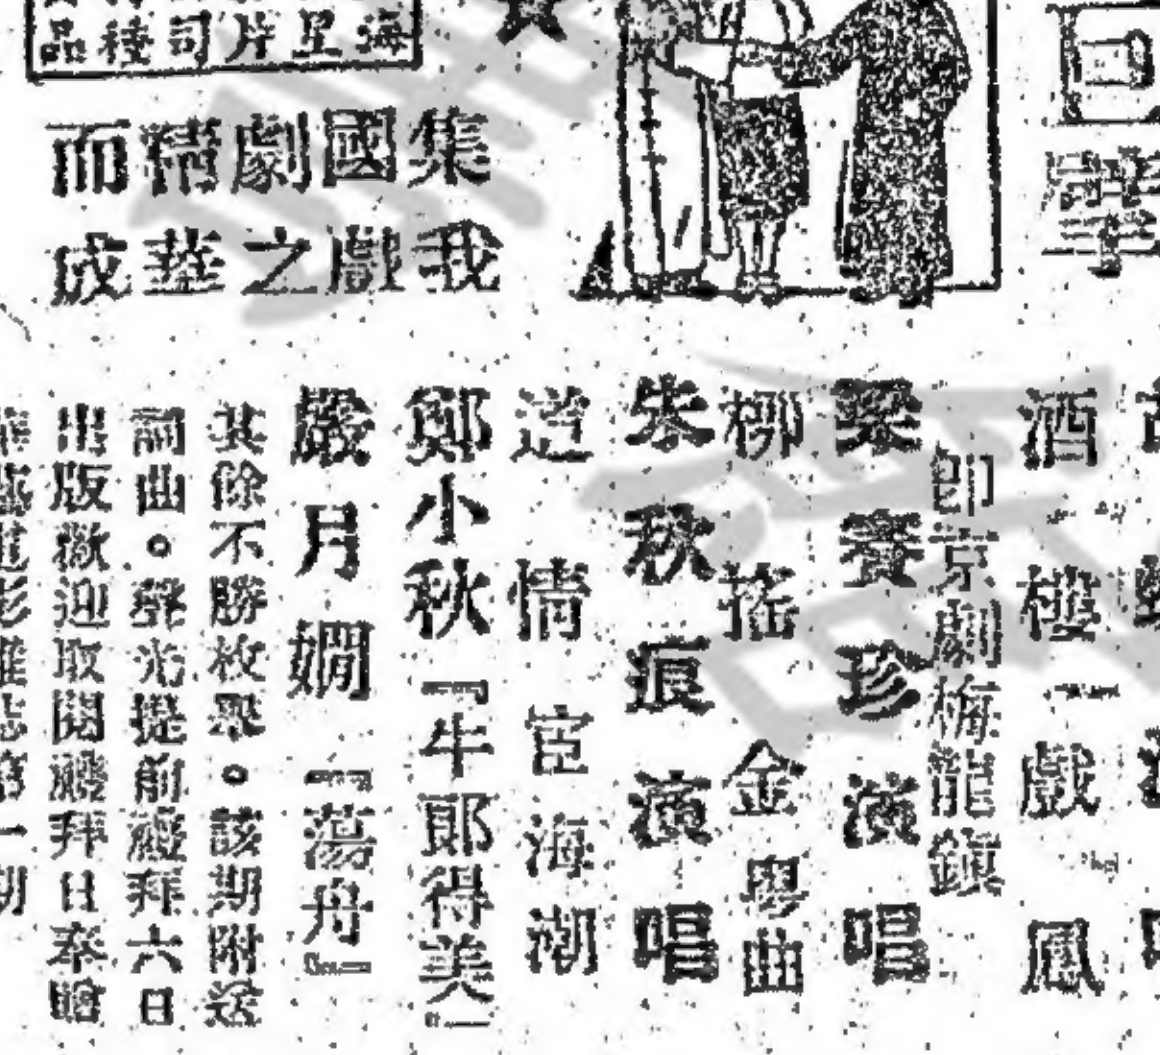 海星片司種品
集國劇精而
我戲之華成
酒樓戲鳳
即京劇梅龍鎮
梁賽珍演唱
柳搖金粵曲
朱秋痕演唱
道情宦海潮
鄭小秋「牛郎得美」
嚴月嫻「蕩舟」
其餘不勝枚舉。該期附送
詞曲。聲光提前禮拜六日
出版歡迎取閱禮拜日奉贈